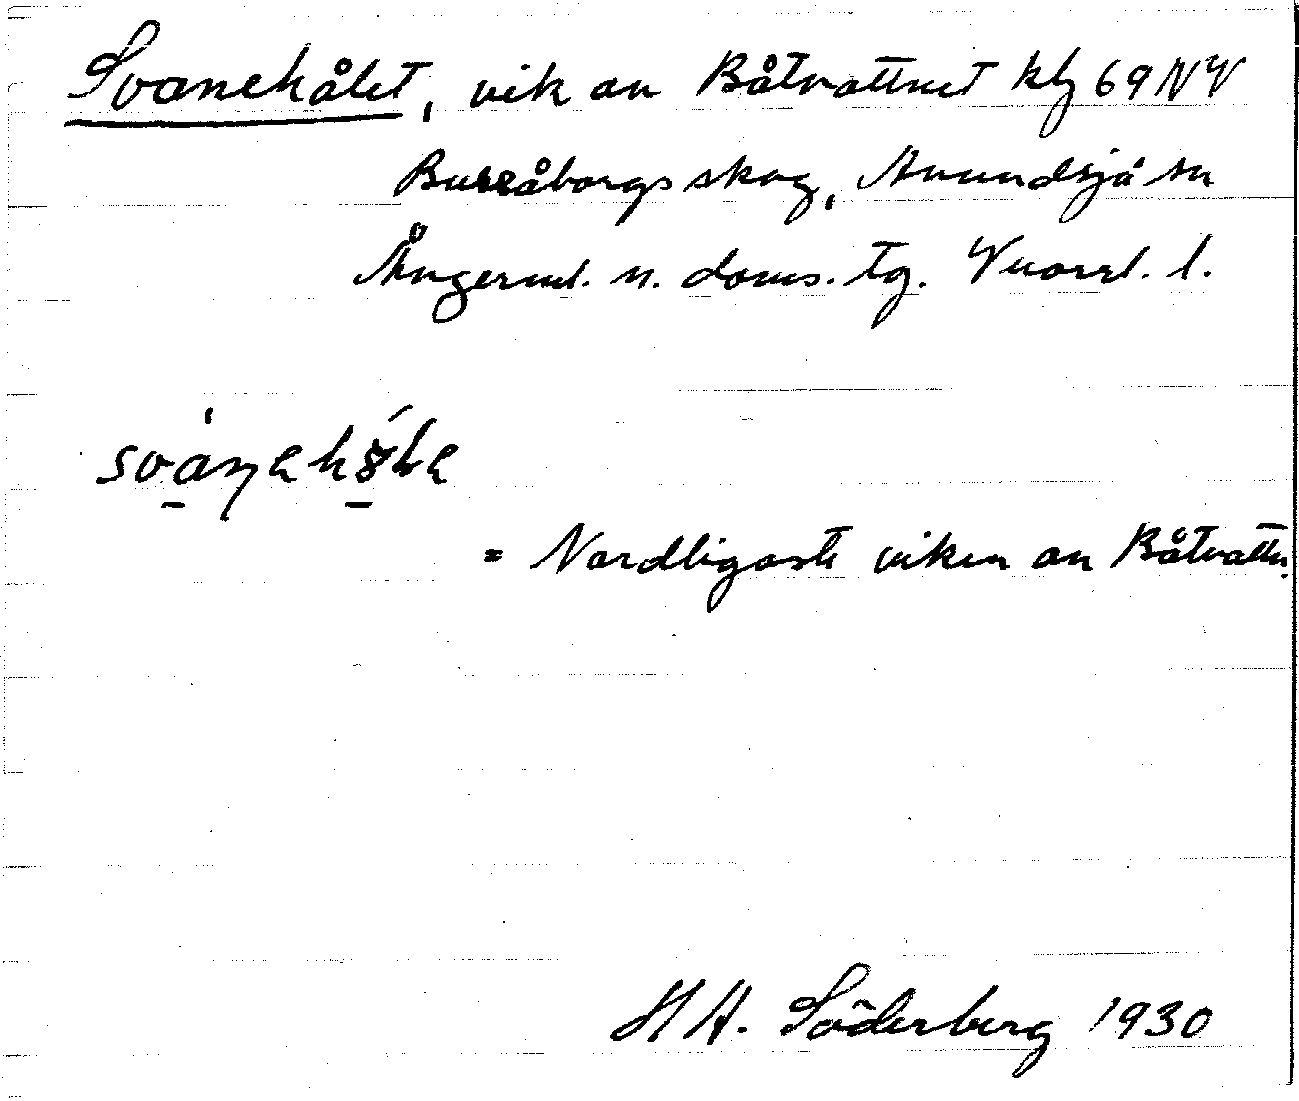 Svanehålet, vik av Båtvattnet kbl 69 NV
Bursåborgs skog, Anundsjö sn
Ångerml. n. doms. tg. Vnorrl. l.
svanehåle
= Nordligaste viken av Båtvattn.
HA. Söderberg 1930